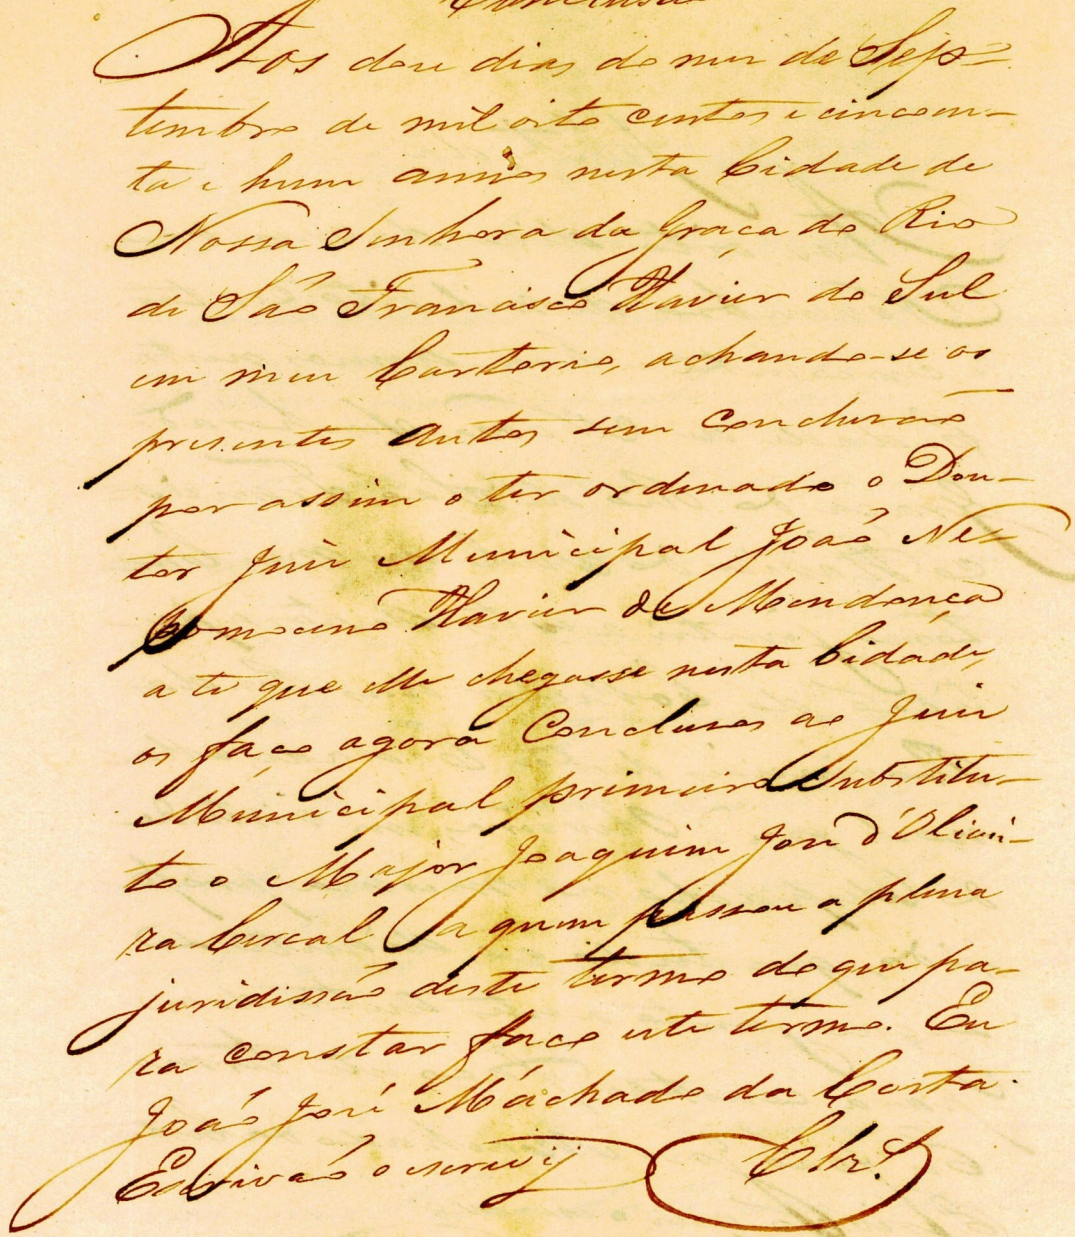 Conclusão
Aos doze dias do mez de Sep=
tembro de mil oito centos e cincoen-
ta e hum annos nesta Cidade de
Nossa Senhora da Graça do Rio
de São Francisco Xavier do Sul
em meu Cartorio, achando-se os
presentes Autos sem conclusão
por assim o ter ordenado o Dou-
tor Juiz Municipal João Ne=
pomoceno Xavier de Mendonça
a te que elle chegasse nesta Cidade,
os faço agora Conclusos ao Juiz
Municipal primeiro Substitu-
to o Major Joaquim José d'Olivei-
ra Cercal a quem passou a plena
juridissão deste termo do que pa-
ra constar faço este termo. Eu
João José Máchado da Costa.
Escrivão o escrevij Clzº.